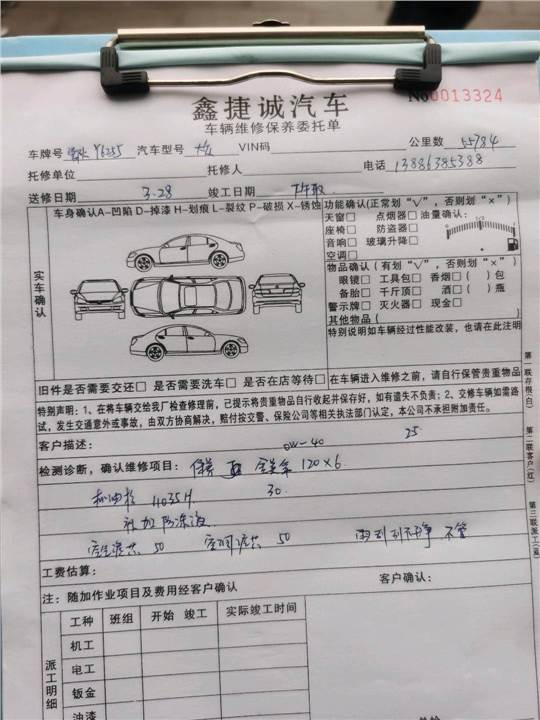 鑫捷诚汽车
No0013324
车辆维修保养委托单
车牌号 Y6255 汽车型号 大众 VIN码 公里数 55784
托修单位 托修人 电话 13886385388
送修日期 3.28 竣工日期
实车确认
车身确认A-凹陷 D-掉漆 H-划痕 L-裂纹 P-破损 X-锈蚀
功能确认(正常划“√”，否则划“×”)
天窗□ 点烟器□ 油量确认:
座椅□ 防盗器□
音响□ 玻璃升降□
空调□
物品确认(有划“√”，否则划“×”)
眼镜□ 工具包□ 香烟□( )包
备胎□ 千斤顶□ 酒□( )瓶
警示牌□ 灭火器□ 现金□
其他物品( )
特别说明如车辆经过性能改装，也请在此注明
旧件是否需要交还□ 是否需要洗车□ 是否在店等待□ 在车辆进入维修之前，请自行保管贵重物品
特别声明：1、在将车辆交给我厂检查修理前，已提示将贵重物品自行收起并保存好，如有遗失不负责；2、交修车辆如需路
试，发生交通意外或事故，由双方协商解决，赔付按交警、保险公司等相关执法部门认定，本公司不承担附加责任。
客户描述: 0W-40 25
检测诊断，确认维修项目: 120×6
机油格 11035H 30
添加防冻液
50 空调滤芯 50 雨刮刮不干净 不管
工费估算:
注：随加作业项目及费用经客户确认 客户确认:
派工明细
工种 班组 开始 竣工 实际竣工时间
机工
电工
钣金
油漆
第一联存根(白) 第二联客户(红) 第三联派工(蓝)